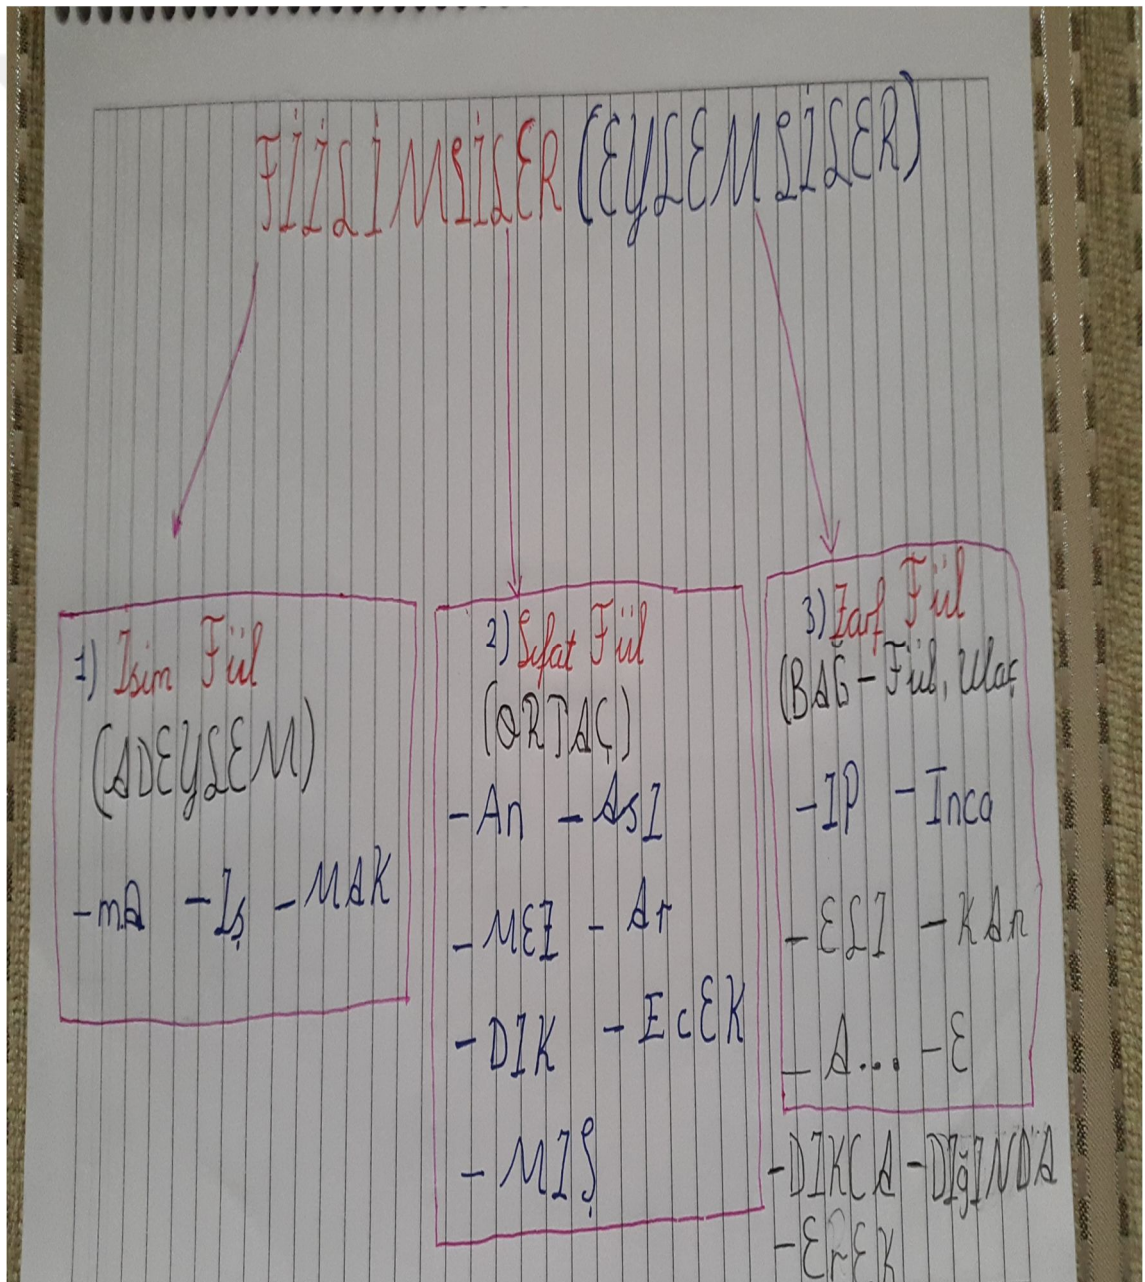 FİİLİMSİLER (EYLEMSİLER)
1) Isim Fiil
(ADEYLEM)
-mA -Iş -MAK
2) Sıfat Fiil
(ORTAÇ)
-An -AsI
-MEZ -Ar
-DIK -EcEK
-MIŞ
3) Zarf Fiil
(BAĞ-Fiil, Ulaç
-IP -Inca
-ELI -KAn
-A... -E
-DIKCA -DIğINDA
-ErEK